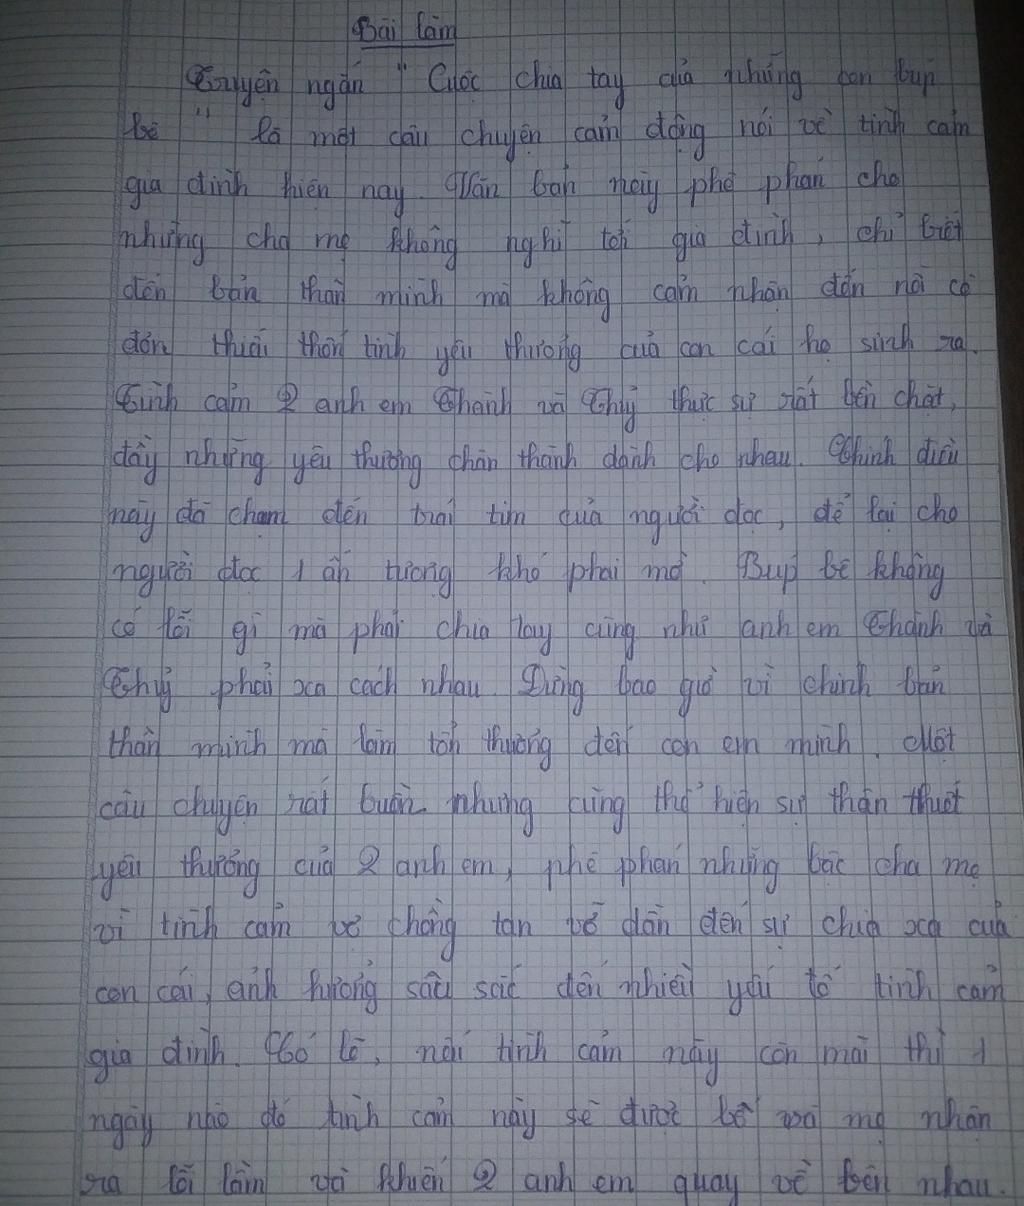 Bài làm
Truyện ngắn " Cuộc chia tay của những con búp
bê " là một câu chuyện cảm động nói về tình cảm
gia đình hiện nay. Văn bản này phê phán cho
những cha mẹ không nghĩ tới gia đình, chỉ biết
đến bản thân mình mà không cảm nhận đến nỗi cô
đơn, thiếu thốn tình yêu thương của con cái họ sinh ra.
Tình cảm 2 anh em Thành và Thủy thực sự rất bền chặt,
đầy những yêu thương chân thành dành cho nhau. Chính điều
này đã chạm đến trái tim của người đọc, để lại cho
người đọc 1 ấn tượng khó phai mờ. Búp bê không
có lỗi gì mà phải chia tay cũng như anh em Thành và
Thủy phải xa cách nhau. Đừng bao giờ vì chính bản
thân mình mà làm tổn thương đến con em mình. Một
câu chuyện rất buồn nhưng cũng thể hiện sự thân thuột
yêu thương của 2 anh em, phê phán những bậc cha mẹ
vì tình cảm vợ chồng tan vỡ dẫn đến sự chia xa của
con cái, ảnh hưởng sâu sắc đến nhiều yếu tố tình cảm
gia đình. Có lẽ, nếu tình cảm này còn mãi thì 1
ngày nào đó tình cảm này sẽ được bố và mẹ nhận
ra lỗi lầm và khiến 2 anh em quay về bên nhau.